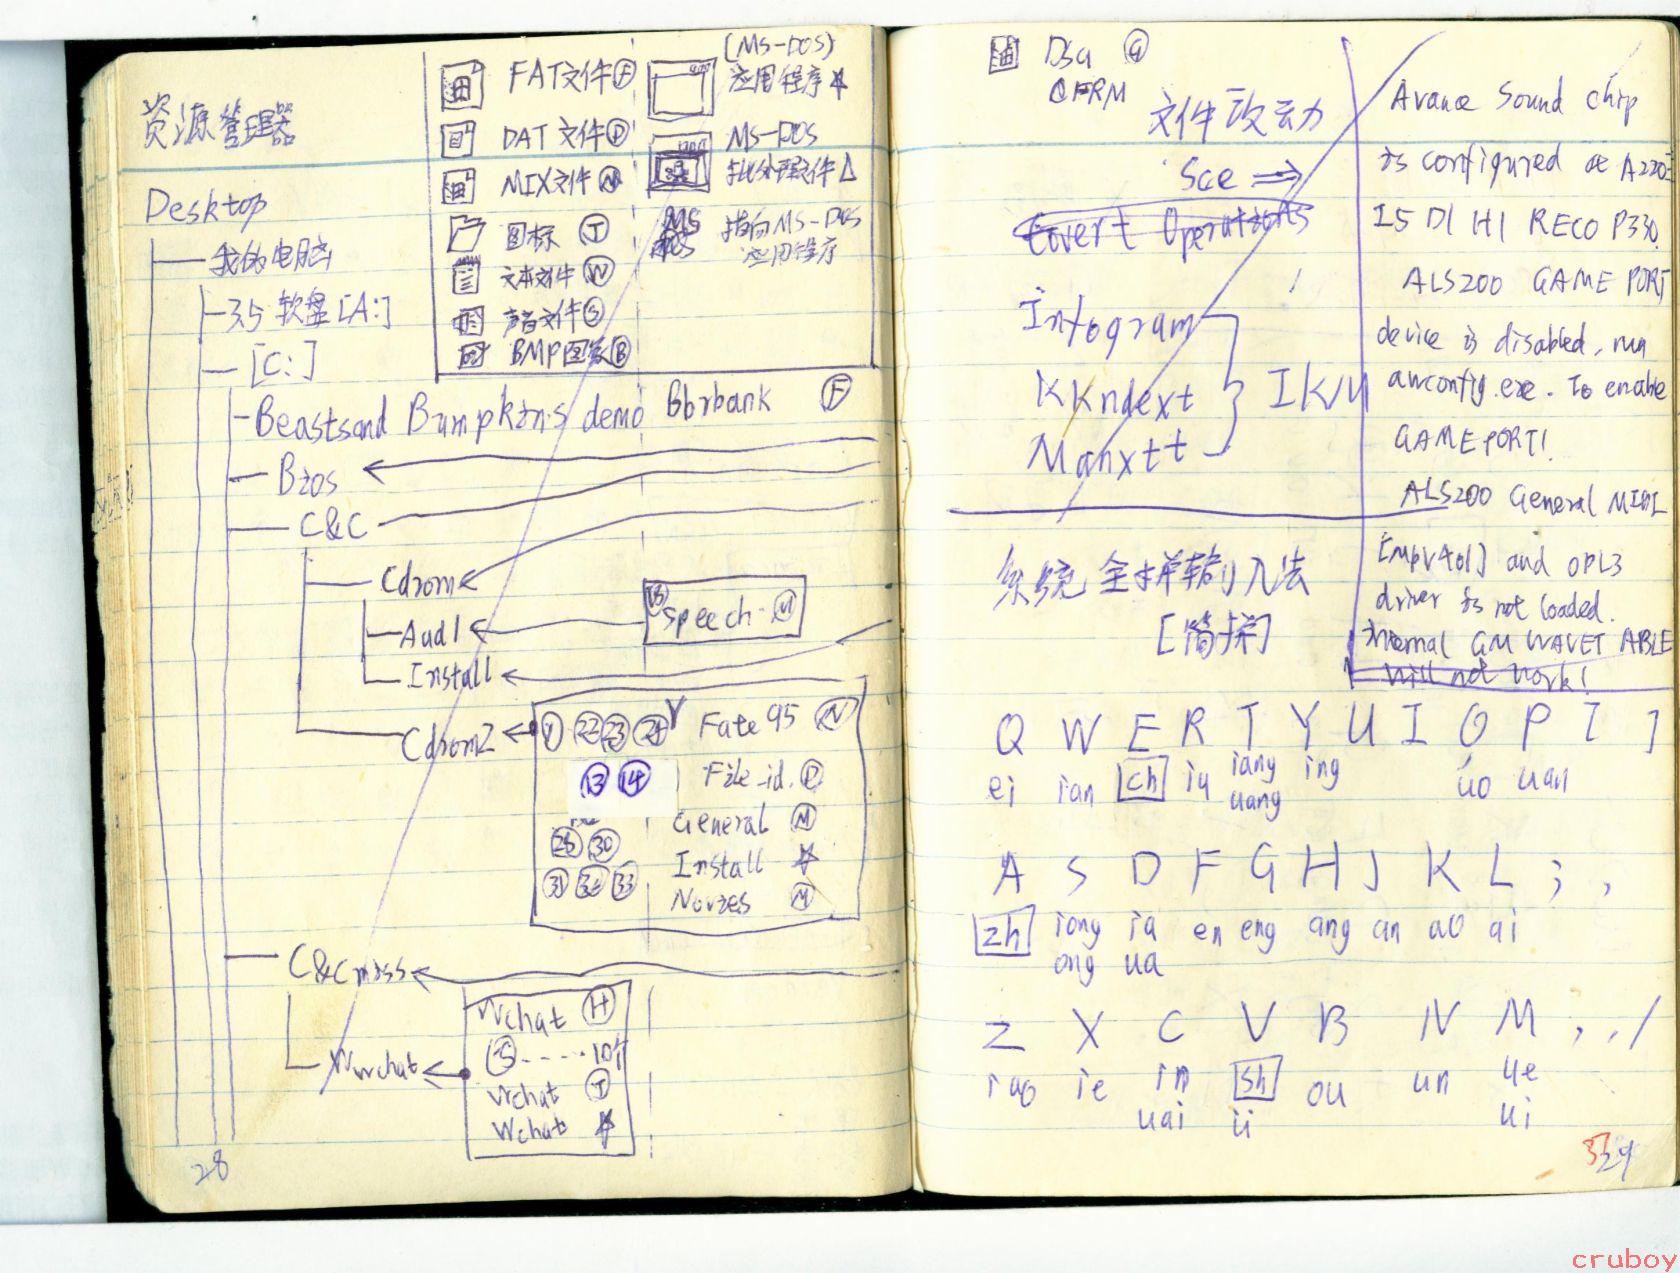 资源管理器
Desktop
我的电脑
3.5 软盘 [A:]
[C:]
FAT文件 F
DAT 文件 D
MIX文件 M
图标 T
文本文件 W
声音文件 S
BMP图象 B
(MS-DOS)
应用程序
MS-DOS
批处理文件 △
MS
指向MS-DOS
应用程序
Beastsand Bumpkins demo Bbrbank F
Bios
C&C
Cdrom
Aud1
Speech M
Install
Cdrom2
1 22 23 24 Y Fate95 N
13 14 File_id. D
General M
29 30 Install
31 32 33 Novres M
C&Cmiss
Wchat H
S ---- 10个
Wchat T
Wchat
Wwchat
28
Dsa G
文件改动
Sce ⇒
Covert Operations
Intogram
KKndext
Manxtt
Avance Sound chip
is configured at A220
I5 D1 H1 RECO P330.
ALS200 GAME PORT
device is disabled, run
awconfig.exe. To enable
GAMEPORT!
ALS200 General MIDI
[Mpv401] and OPL3
driver is not loaded.
internal GM WAVETABLE
will not work!
系统 全拼输入法
[简拼]
Q W E R T Y U I O P [ ]
ei ian ch iu iang ing uo uan
uang
A S D F G H J K L ; ,
zh iong ia en eng ang an ao ai
ong ua
Z X C V B N M , . /
iao ie in sh ou un ue
uai ii ui
29
cruboy